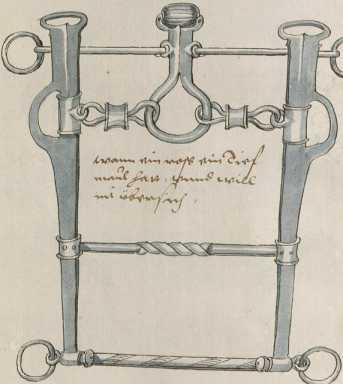 wann ein ross ein Tief
maul hat. unnd will
nit übersich.